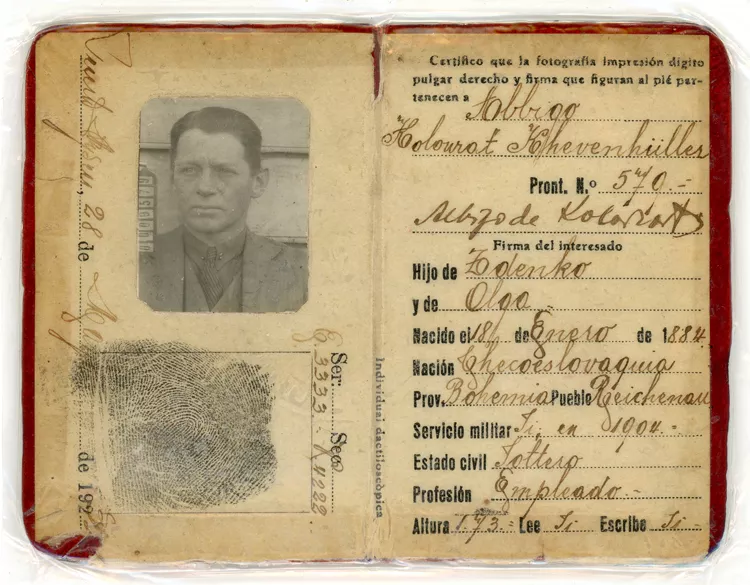 28 de
de 192
Ser: Sec:
E 3333 - V 4222
Individual dactiloscópica
Certifico que la fotografía impresión dígito
pulgar derecho y firma que figuran al pié per-
tenecen a Abbigo
Kolowrat Khevenhüller
Pront. N.º 570.-
Firma del interesado
Hijo de Zdenko
y de Olga
Nacido el 18 de Enero de 1884.
Nación Checoeslovaquia
Prov. Bohemia Pueblo Reichenau
Servicio militar Si, en 1904.-
Estado civil Soltero
Profesión Empleado.-
Altura 1.73.- Lee Si Escribe Si.-